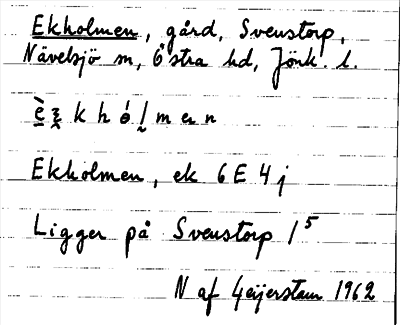 Ekholmen, gård, Svenstorp,
Nävelsjö sn, Östra hd, Jönk. l.
k h ó l m e n
Ekholmen, ek 6E 4j
Ligger på Svenstorp 1⁵
N af Geijerstam 1962